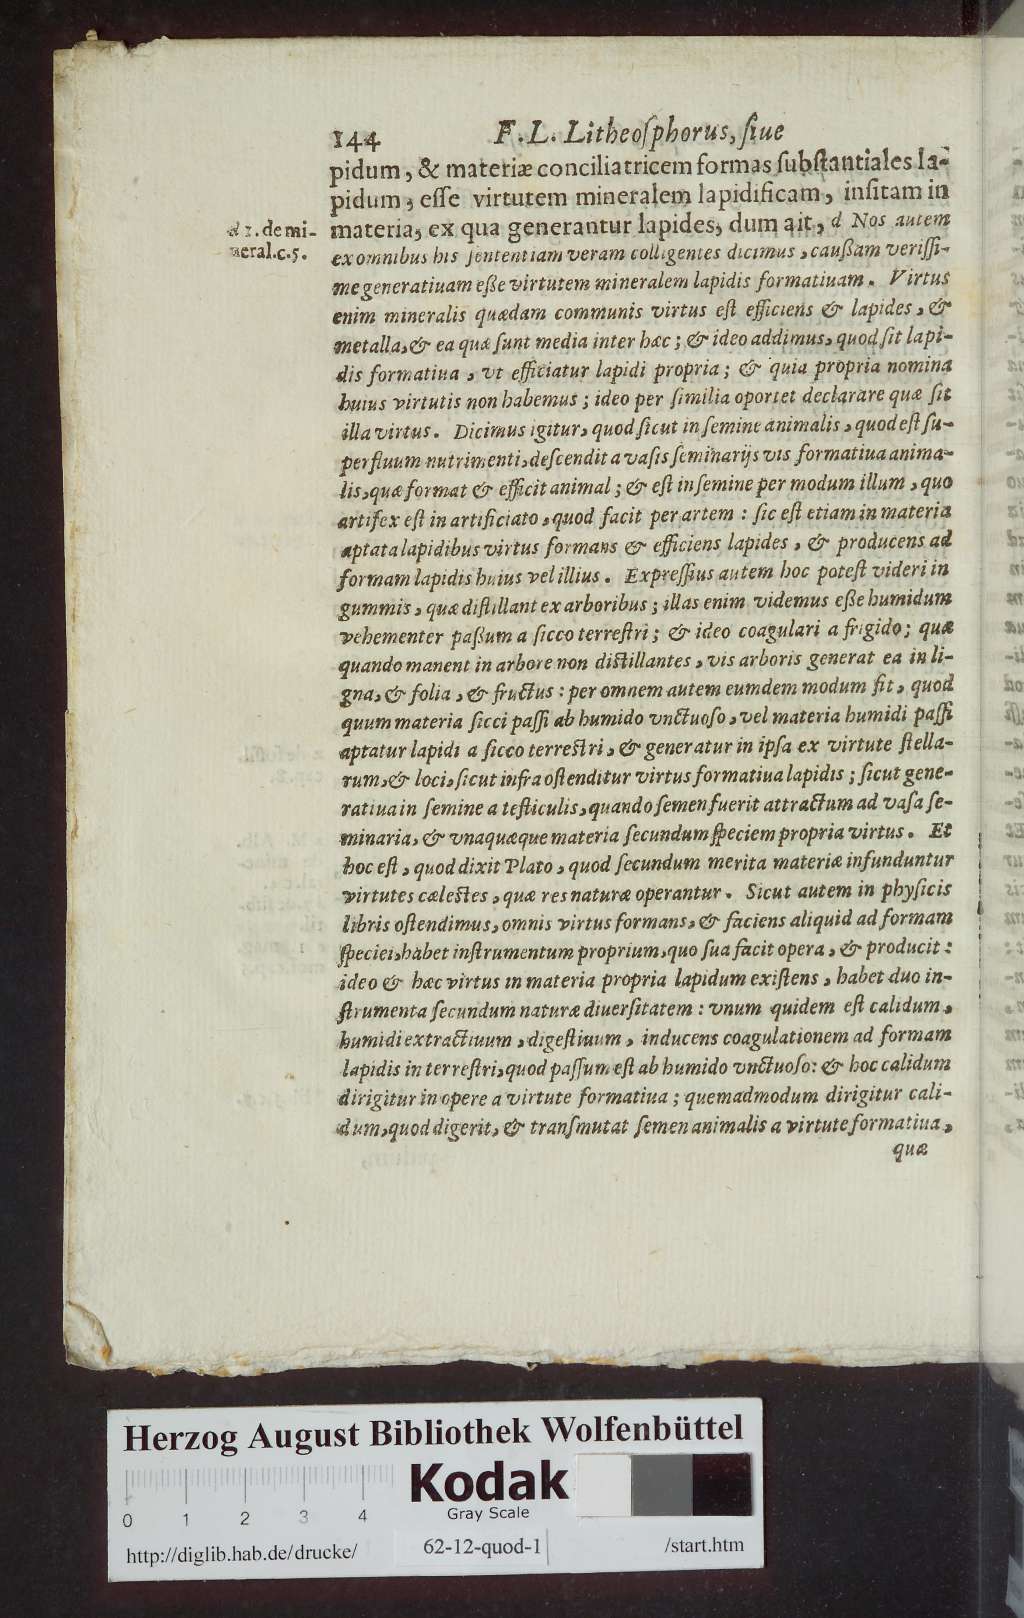 144 F. L. Litheoſphorus, ſiue
pidum, & materiæ conciliatricem formas ſubſtantiales la-
pidum, eſſe virtutem mineralem lapidificam, inſitam in
d 1. de mi-
neral. c. 5.
materia, ex qua generantur lapides, dum ait, d Nos autem
ex omnibus his ſententiam veram colligentes dicimus, cauſſam veriſſi-
me generatiuam eſſe virtutem mineralem lapidis formatiuam. Virtus
enim mineralis quædam communis virtus eſt efficiens & lapides, &
metalla, & ea quæ ſunt media inter hæc; & ideo addimus, quod ſit lapi-
dis formatiua, vt efficiatur lapidi propria; & quia propria nomina
huius virtutis non habemus; ideo per ſimilia oportet declarare quæ ſit
illa virtus. Dicimus igitur, quod ſicut in ſemine animalis, quod eſt ſu-
perfluum nutrimenti, deſcendit a vaſis ſeminarijs vis formatiua anima-
lis, quæ format & efficit animal; & eſt in ſemine per modum illum, quo
artifex eſt in artificiato, quod facit per artem: ſic eſt etiam in materia
aptata lapidibus virtus formans & efficiens lapides, & producens ad
formam lapidis huius vel illius. Expreſſius autem hoc poteſt videri in
gummis, quæ diſtillant ex arboribus; illas enim videmus eſſe humidum
vehementer paſſum a ſicco terreſtri; & ideo coagulari a frigido; quæ
quando manent in arbore non diſtillantes, vis arboris generat ea in li-
gna, & folia, & fructus: per omnem autem eumdem modum fit, quod
quum materia ſicci paſſi ab humido vnctuoſo, vel materia humidi paſſi
aptatur lapidi a ſicco terreſtri, & generatur in ipſa ex virtute ſtella-
rum, & loci, ſicut infra oſtenditur virtus formatiua lapidis; ſicut gene-
ratiua in ſemine a teſticulis, quando ſemen fuerit attractum ad vaſa ſe-
minaria, & vnaquæque materia ſecundum ſpeciem propria virtus. Et
hoc eſt, quod dixit Plato, quod ſecundum merita materiæ infunduntur
virtutes cæleſtes, quæ res naturæ operantur. Sicut autem in phyſicis
libris oſtendimus, omnis virtus formans, & faciens aliquid ad formam
ſpeciei, habet inſtrumentum proprium, quo ſua facit opera, & producit:
ideo & hæc virtus in materia propria lapidum exiſtens, habet duo in-
ſtrumenta ſecundum naturæ diuerſitatem: vnum quidem eſt calidum,
humidi extractiuum, digeſtiuum, inducens coagulationem ad formam
lapidis in terreſtri, quod paſſum eſt ab humido vnctuoſo: & hoc calidum
dirigitur in opere a virtute formatiua; quemadmodum dirigitur cali-
dum, quod digerit, & tranſmutat ſemen animalis a virtute formatiua,
quæ
Herzog August Bibliothek Wolfenbüttel
Kodak
Gray Scale
0 1 2 3 4
http://diglib.hab.de/drucke/ 62-12-quod-1 /start.htm